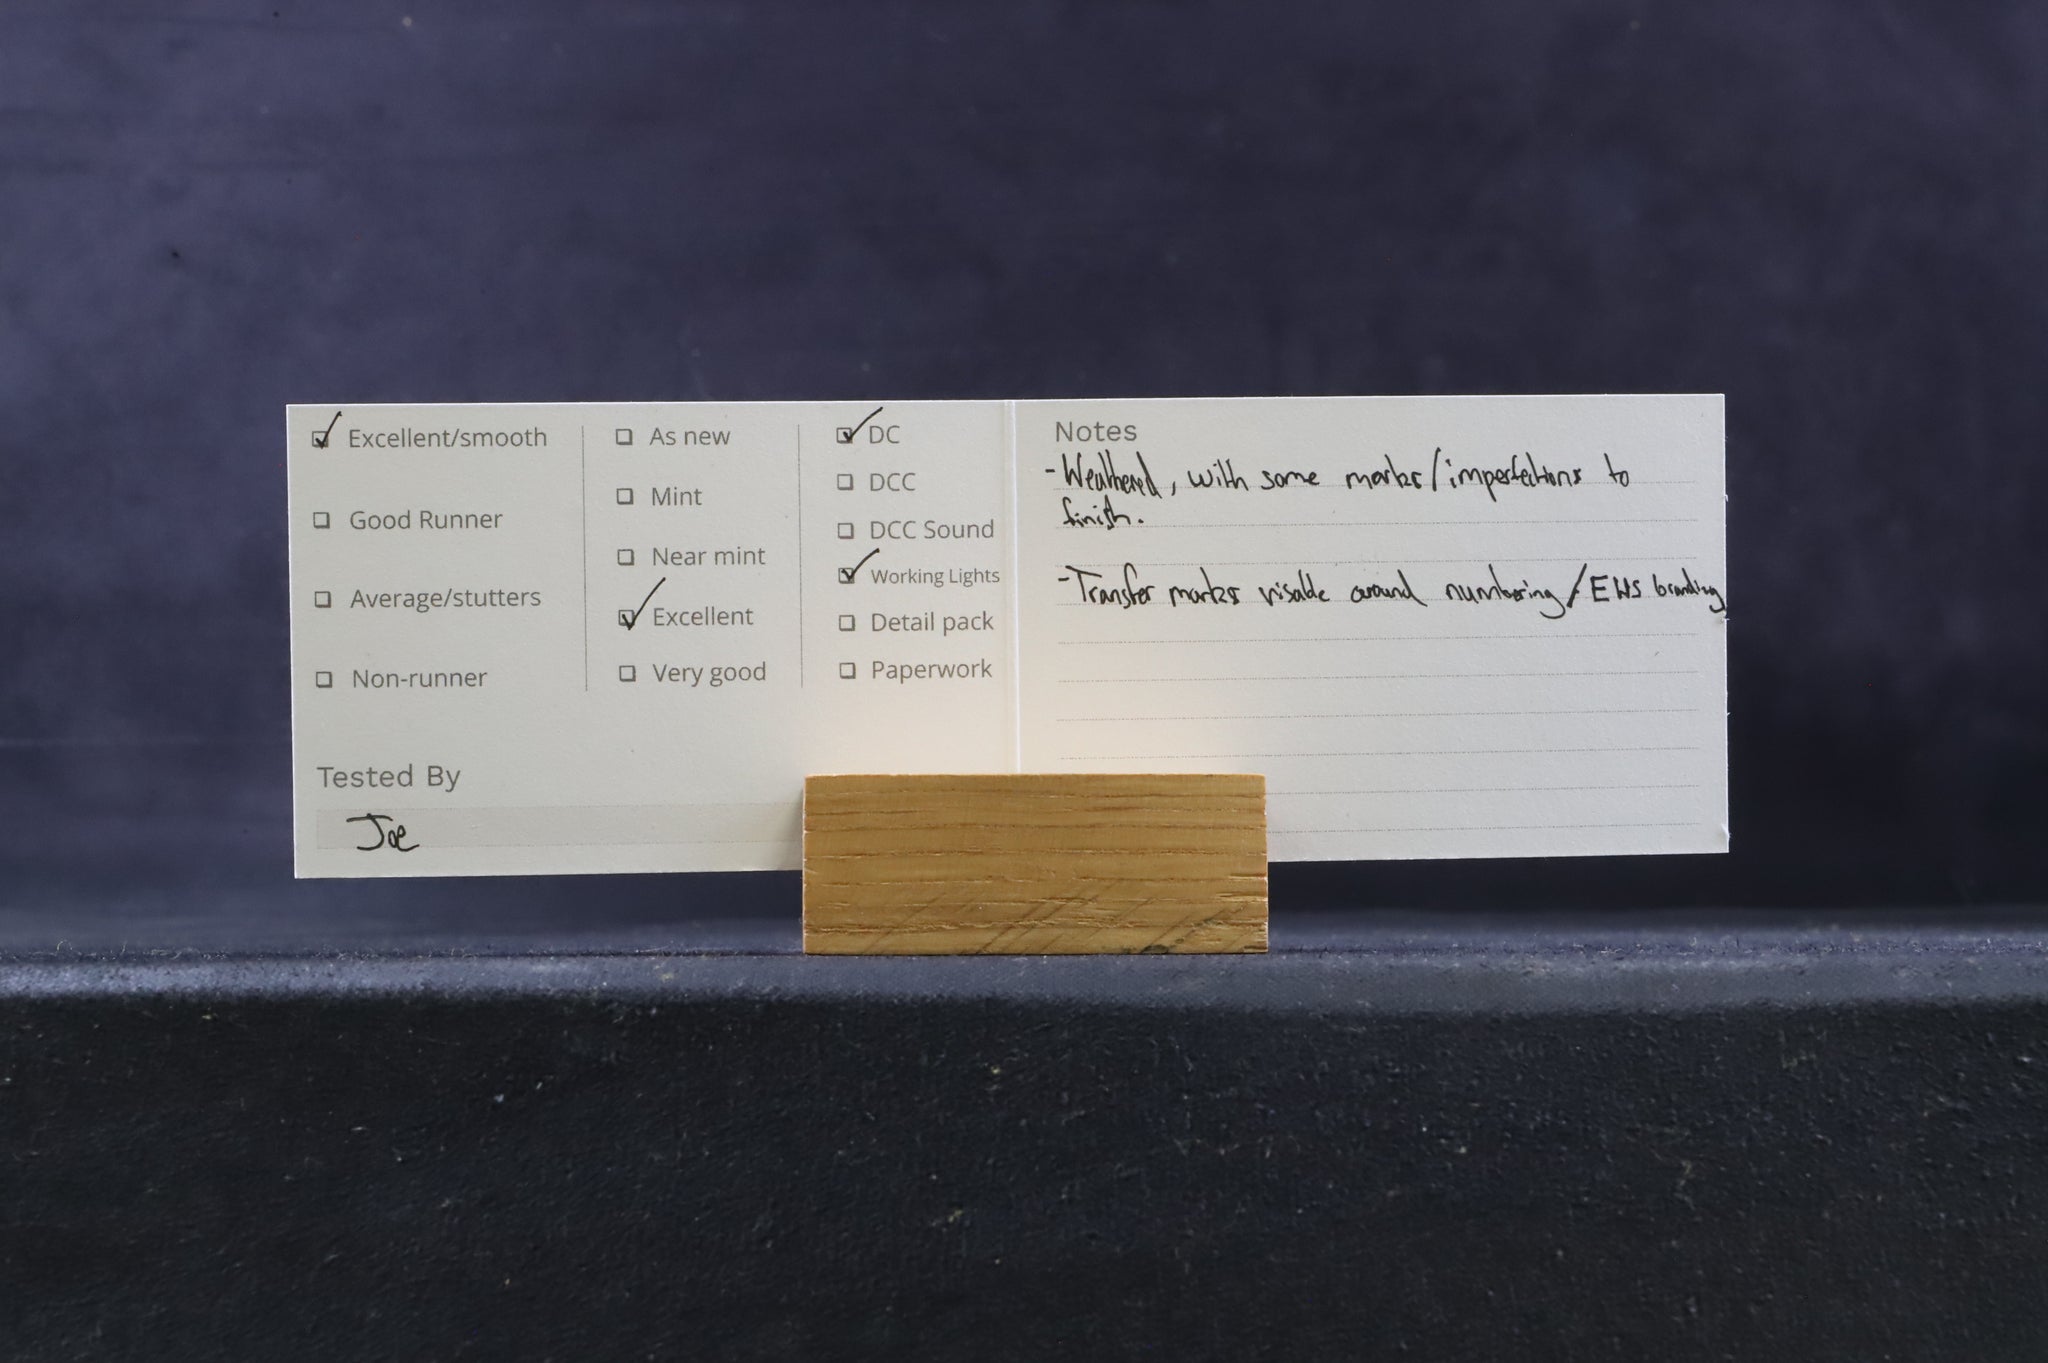 Excellent/smooth
Good Runner
Average/stutters
Non-runner
As new
Mint
Near mint
Excellent
Very good
DC
DCC
DCC Sound
Working Lights
Detail pack
Paperwork
Tested By
Joe
Notes
- Weathered, with some marks/imperfections to
finish.
- Transfer marks visable around numbering/EWS branding